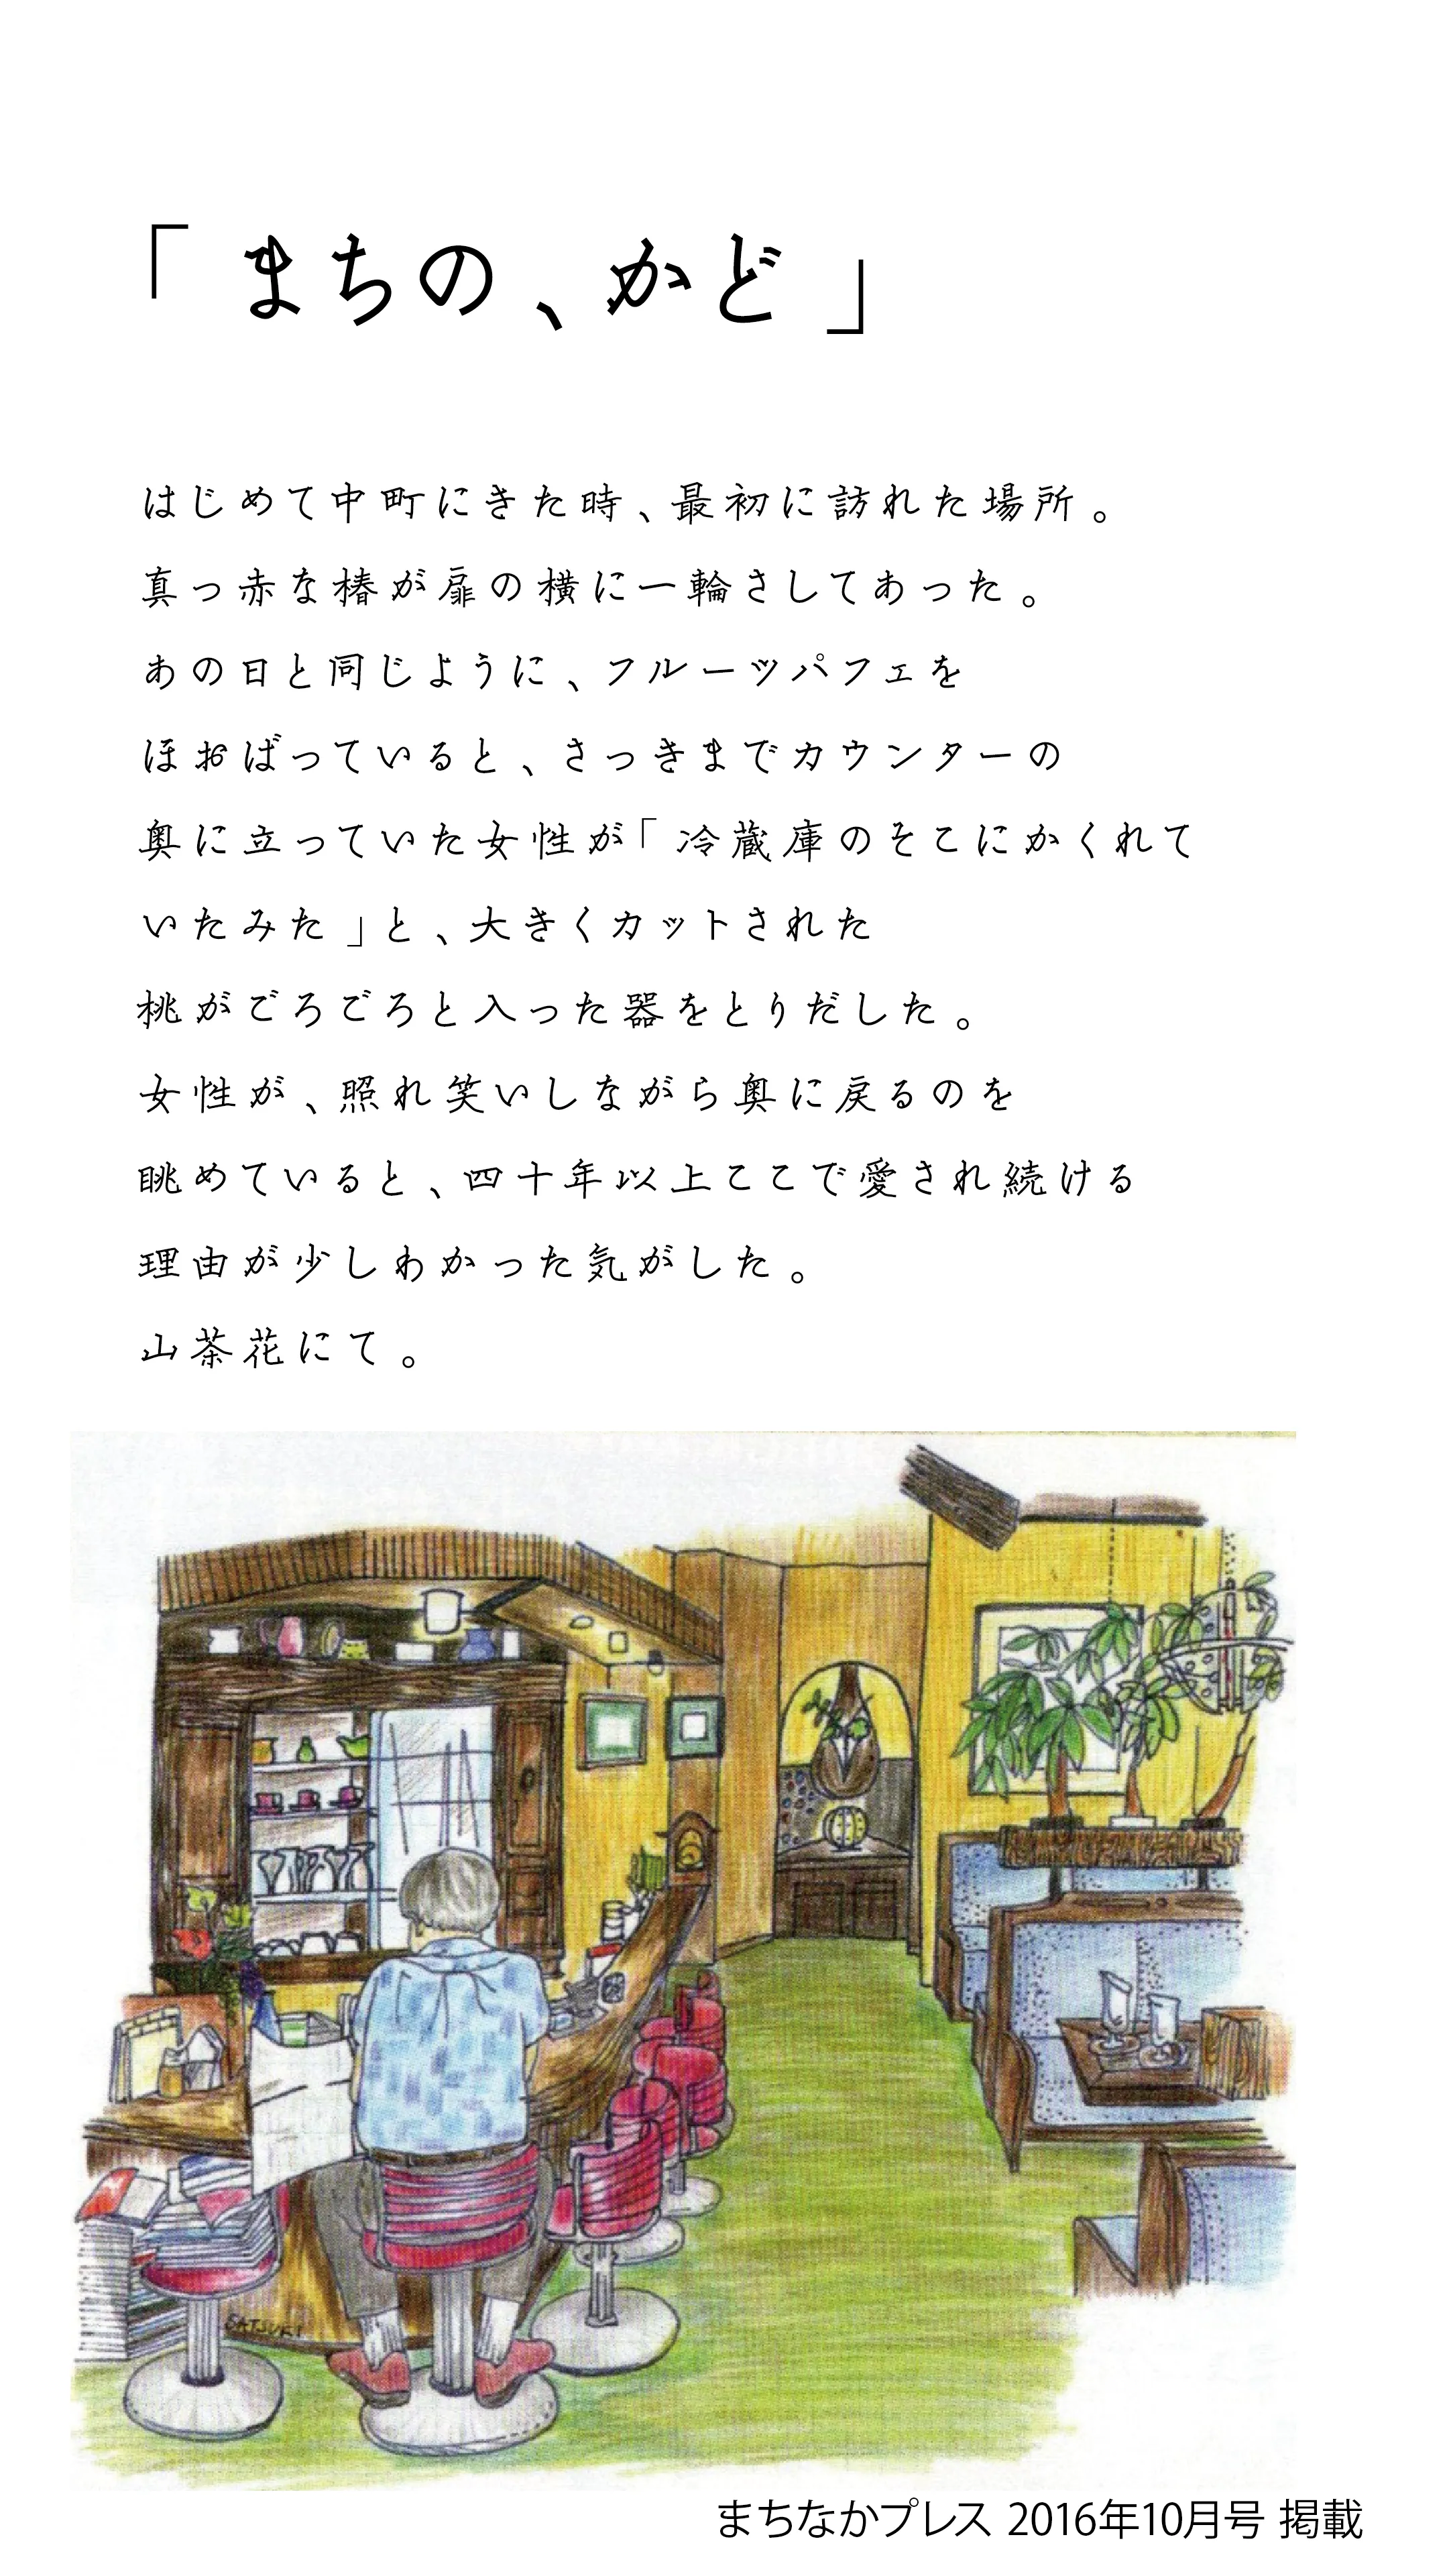 「まちの、かど」
はじめて中町にきた時、最初に訪れた場所。
真っ赤な椿が扉の横に一輪さしてあった。
あの日と同じように、フルーツパフェを
ほおばっていると、さっきまでカウンターの
奥に立っていた女性が「冷蔵庫のそこにかくれて
いたみた」と、大きくカットされた
桃がごろごろと入った器をとりだした。
女性が、照れ笑いしながら奥に戻るのを
眺めていると、四十年以上ここで愛され続ける
理由が少しわかった気がした。
山茶花にて。
SATSUKI
まちなかプレス 2016年10月号 掲載